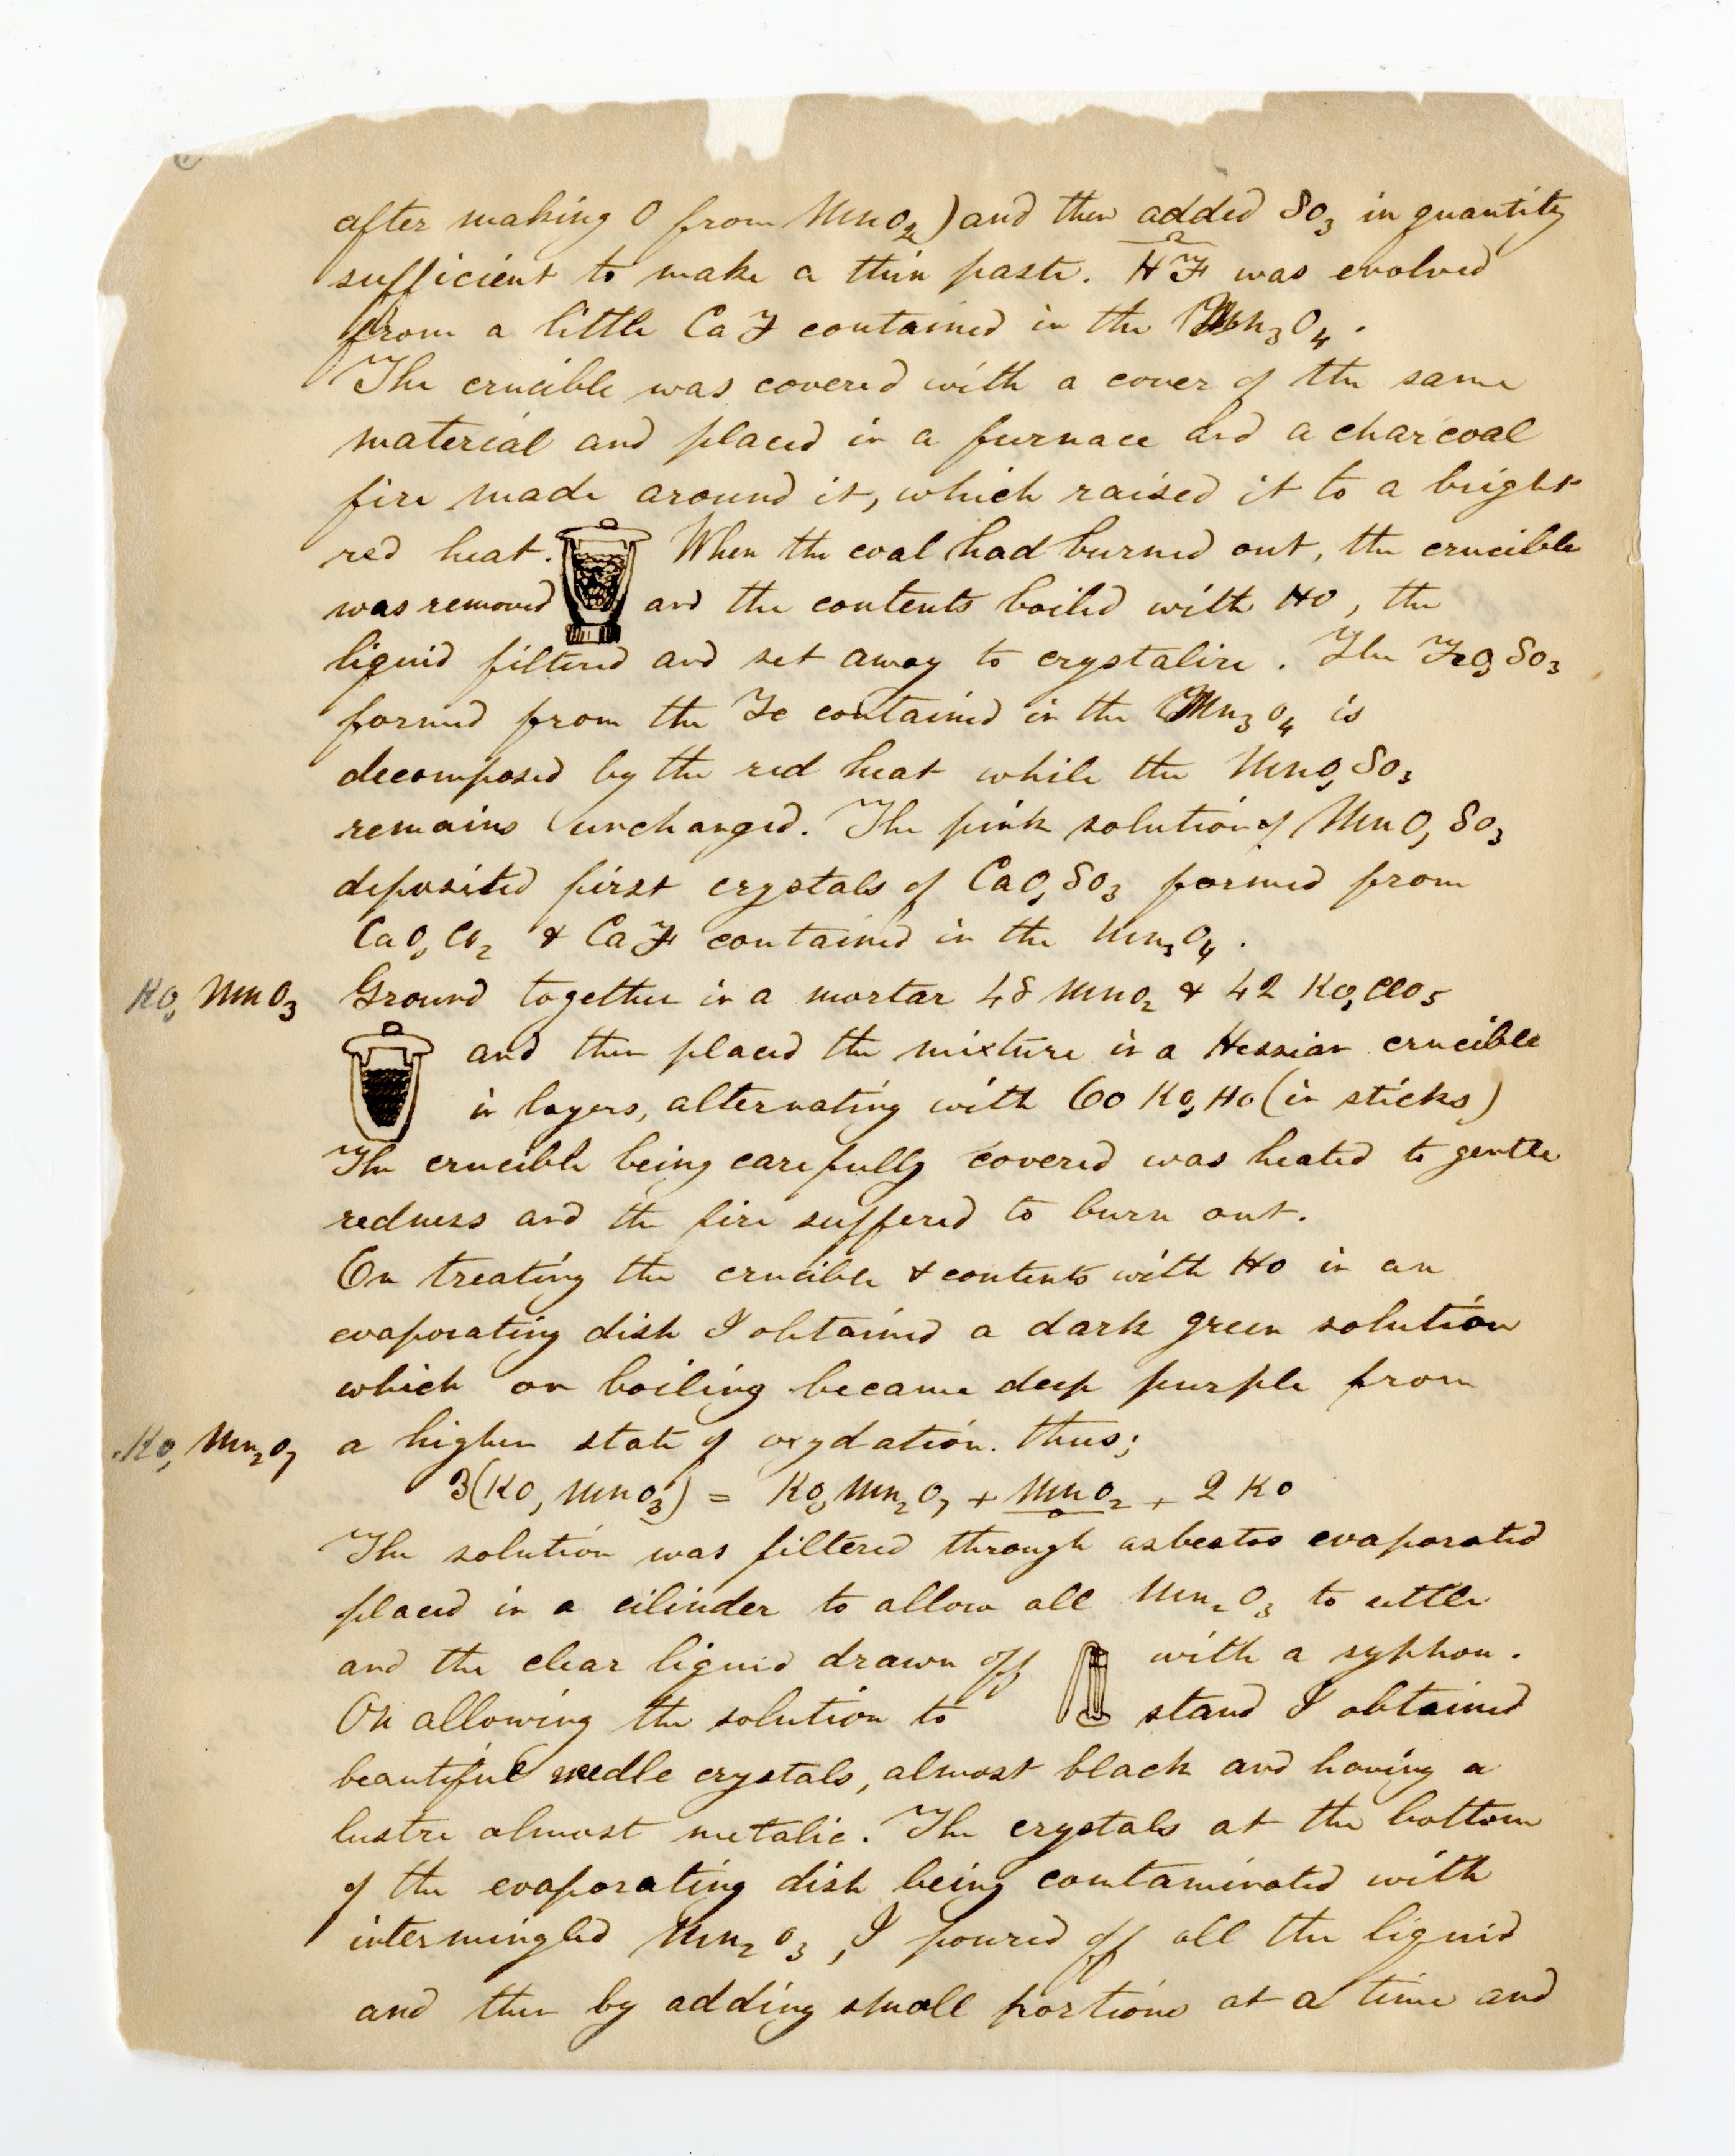 after making O from MnO₂) and then added SO₃ in quantity
sufficient to make a thin paste. HF was evolved
from a little CaF contained in the Mn₃O₄.
The crucible was covered with a cover of the same
material and placed in a furnace and a charcoal
fire made around it, which raised it to a bright
red heat. When the coal had burned out, the crucible
was removed and the contents boiled with HO, the
liquid filtered and set away to crystalize. The FeO,SO₃
formed from the Fe contained in the Mn₃O₄ is
decomposed by the red heat while the MnO,SO₃
remains unchanged. The pink solution of MnO,SO₃
deposited first crystals of CaO,SO₃ formed from
CaO,CO₂ & CaF contained in the Mn₃O₄.
KO,MnO₃ Ground together in a mortar 48 MnO₂ & 42 KO,ClO₅
and then placed the mixture in a Hessian crucible
in layers, alternating with 60 KO,HO (in sticks)
The crucible being carefully covered was heated to gentle
redness and the fire suffered to burn out.
On treating the crucible & contents with HO in an
evaporating dish I obtained a dark green solution
which on boiling became deep purple from
KO,Mn₂O₇ a higher state of oxydation. thus;
3(KO,MnO₃) = KO,Mn₂O₇ + MnO₂ + 2 KO
The solution was filtered through asbestos evaporated
placed in a cilinder to allow all Mn₂O₃ to settle
and the clear liquid drawn off with a syphon.
On allowing the solution to stand I obtained
beautiful needle crystals, almost black and having a
lustre almost metalic. The crystals at the bottom
of the evaporating dish being contaminated with
intermingled Mn₂O₃, I poured off all the liquid
and then by adding small portions at a time and